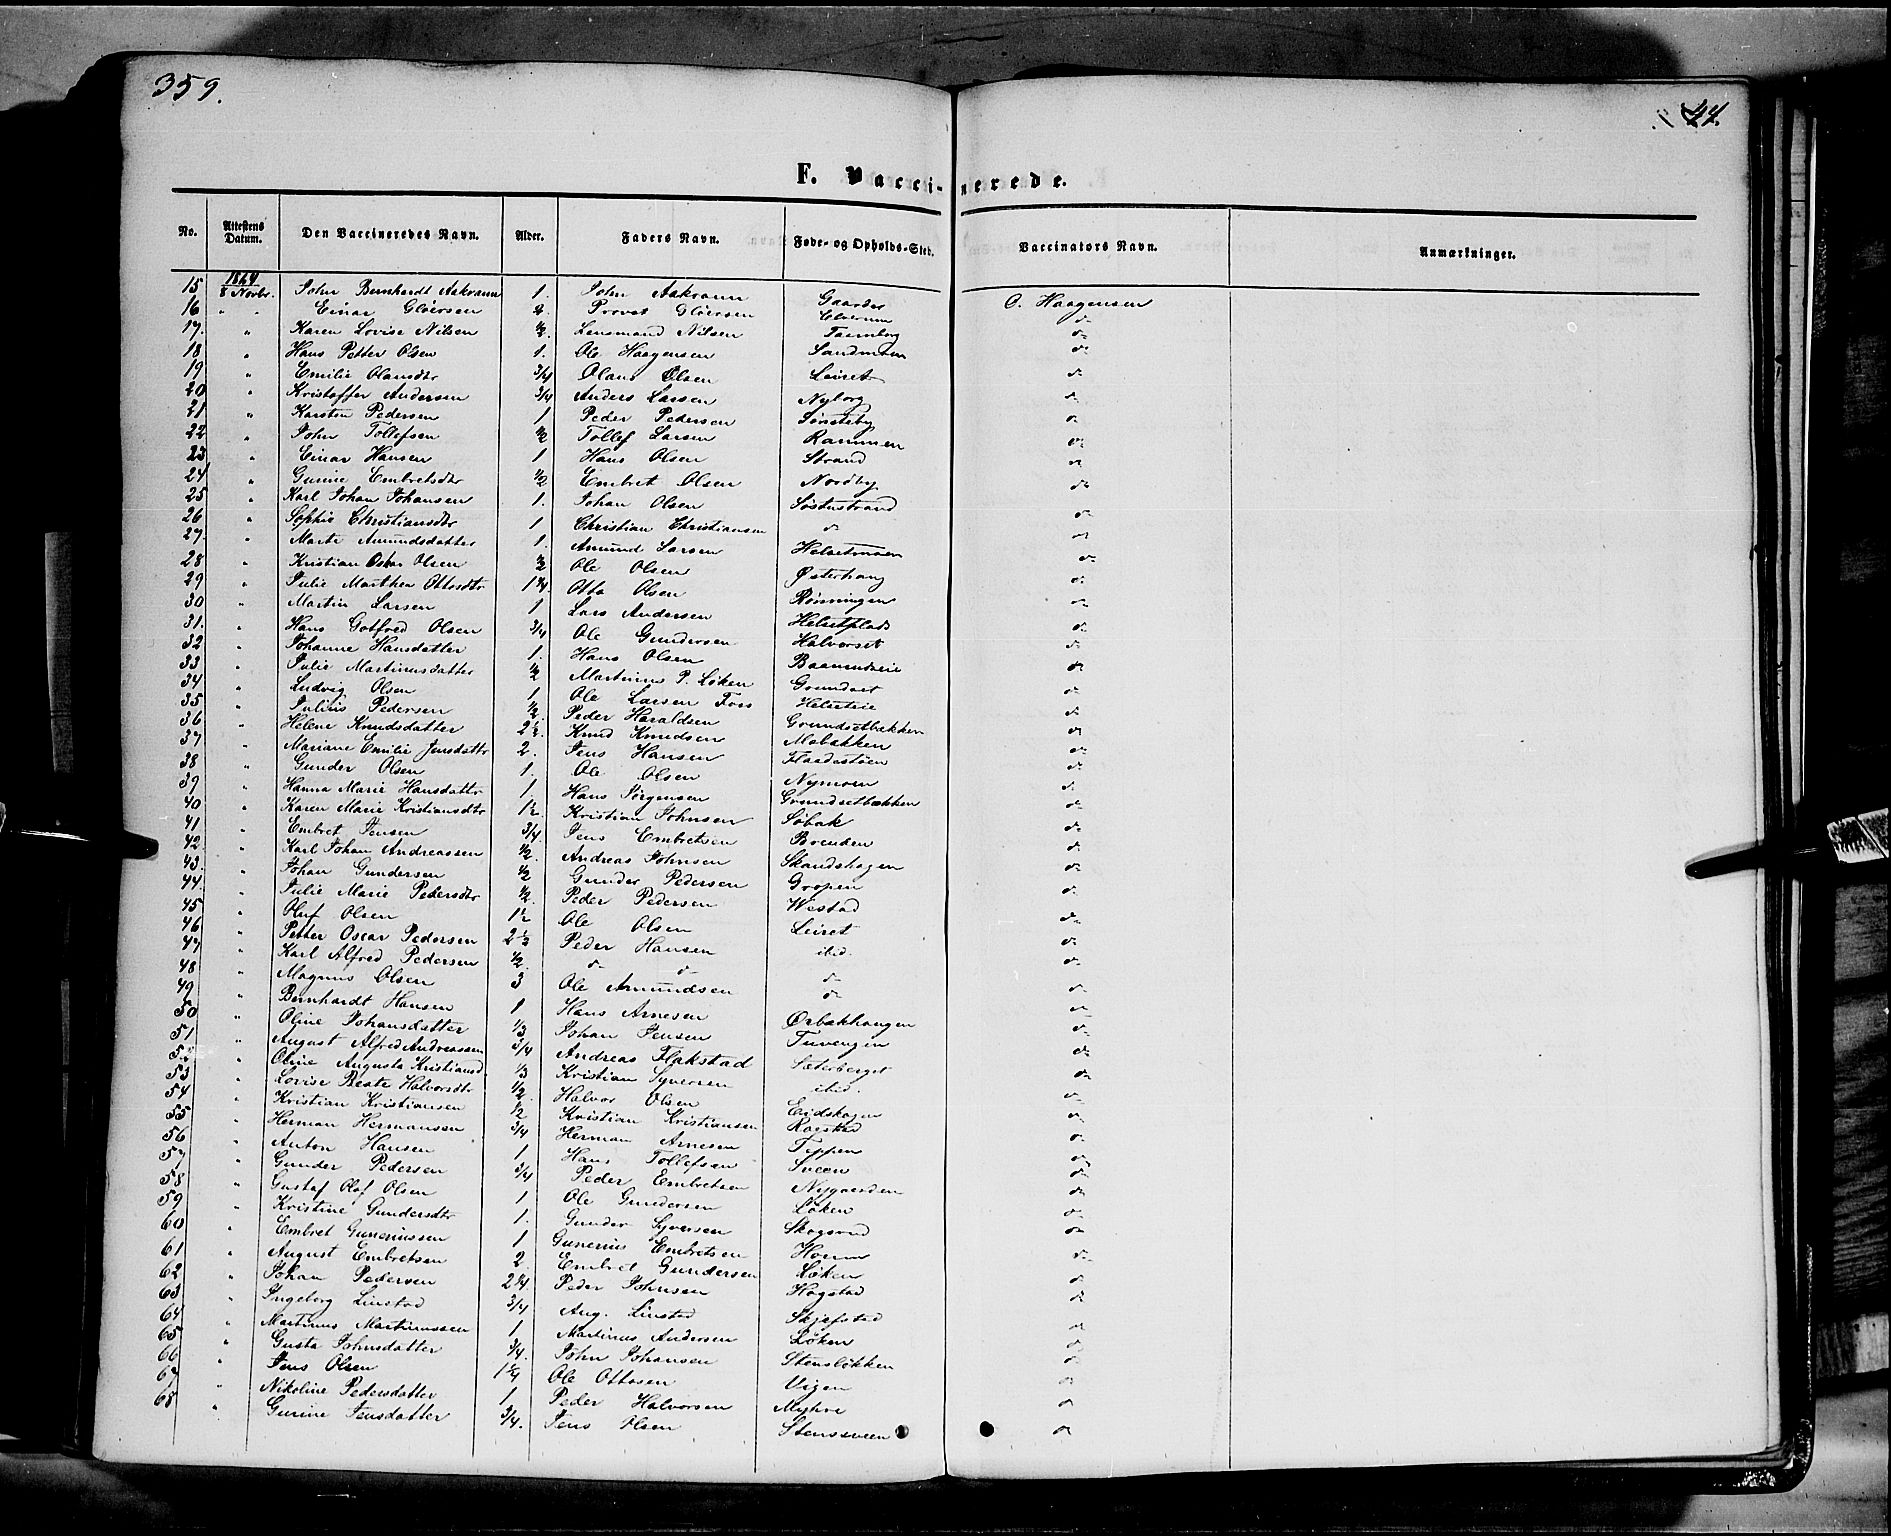 359.
44.
F. Vaccinerede.
No. Attestens Datum. Den Vaccineredes Navn. Alder. Faders Navn. Føde- og Opholds-Sted. Vaccinators Navn. Anmærkninger.
15 1864 8 Novbr. John Bernhardt Aakrann 1. John Aakrann Gaarder O. Haagensen
16 " " Einar Gløersen Provst Gløersen Elverum do
17. " Karen Lovise Nilsen 1/2. Lensmand Nilsen do
18 " Hans Petter Olsen 1. Ole Haagensen Sandmoen do
19 " Emilie Olausdtr 3/4 Olaus Olsen Leiret do
20 " Kristoffer Andersen 3/4 Anders Larsen Nyborg do
21 " Karsten Pedersen 1 Peder Pedersen do
22 " John Tollefsen 1/2 Tollef Larsen Rammen do
23 " Einar Hansen 1 Hans Olsen Strand do
24 " Gurine Embretsdtr 1/2 Embret Olsen Nordby do
25 " Karl Johan Johansen 1. Johan Olsen do
26 " Sophie Christiansdtr 1 Christian Christiansen do do
27. " Marte Amundsdatter 1. Amund Larsen Helsetmoen do
28 " Kristian Oskar Olsen 1/2 Ole Olsen Østerhaug do
29 " Julie Marthea Ottosdtr 1 1/4. Otto Olsen Rønningen do
30 " Martin Larsen 1 Lars Andersen Helsetplads do
31. " Hans Gotfred Olsen 3/4 Ole Gundersen Halvorset do
32 " Johanne Hansdatter 1. Hans Olsen do
33 " Julie Martinusdatter 1/2 Martinus P. Løken Grundset do
34 " Ludvig Olsen 1 Ole Larsen Foss Helseteie do
35 " Julius Pedersen 1/2. Peder Haraldsen Grundsetbækken do
36 " Helene Knudsdatter 2 1/2. Knud Knudsen Mobækken do
37 " Mariane Emilie Jensdatr 2. Jens Hansen do
38 " Gunder Olsen 1. Ole Olsen Nymoen do
39 " Hanna Marie Hansdattr 1. Hans Jørgensen Grundsetbækken do
40 " Karen Marie Kristiansdtr 1 1/2. Kristian Johnsen Søbak do
41 " Embret Jensen 3/4 Jens Embretsen Brenden do
42. " Karl Johan Andreassen 1/2. Andreas Johnsen Skandshagen do
43. " Johan Gundersen 1/2 Gunder Pedersen Gropen do
44. " Julie Marie Pedersdtr 1/2. Peder Pedersen Westad do
45 " Oluf Olsen 1 1/2 Ole Olsen Leiret do
46 " Petter Oscar Pedersen 2 1/2 Peder Hansen ibid. do
47 " Karl Alfred Pedersen 1/2. do do do do
48 " Magnus Olsen 3 Ole Amundsen do do
49 " Bernhardt Hansen 1 Hans Arnesen Ørbækhaugen do
50 " Oline Johansdatter 1/3 Johan Jensen Tuvengen do
51 " August Alfred Andreassen 3/4 Andreas Flakstad Sæterberget do
52 " Oline Augusta Kristiansd 1/3 Kristian Syversen ibid. do
53 " Lovise Beate Halvorsdtr 1/2. Halvor Olsen Eidskogen do
54 " Kristian Kristiansen 1/2 Kristian Kristiansen do
55 " Herman Hermansen 3/4 Herman Arnesen Teppen do
56 " Anton Hansen 1 Hans Tollefsen Sveen do
57 " Gunder Pedersen 3/4 Peder Embretsen Nygaarden do
58 " Gustaf Olaf Olsen 1 Ole Gundersen Løken do
59 " Kristine Gundersdtr 1. Gunder Syversen Skogsrud do
60 " Embret Gunerussen 1 Gunerius Embretsen do
61 " August Embretsen 2. Embret Gundersen Løken do
62 " Johan Pedersen 2 1/4. Peder Johnsen Hagstad do
63 " Ingeborg Linstad 3/4 Aug. Linstad Skjefstad do
64 " Martinus Martinussen 1 Martinus Andersen Løken do
65 " Gusta Johnsdatter 3/4. John Johansen Stensløkken do
66 " Jens Olsen 1 1/4 Ole Ottosen Vigen do
67 " Nikoline Pedersdatter 1. Peder Halvorsen Myhre do
68 " Gurine Jensdatter 3/4. Jens Olsen Stenssveen do